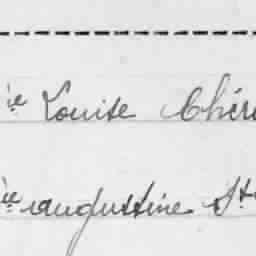 ie Louise Chér
ie augustine Ste